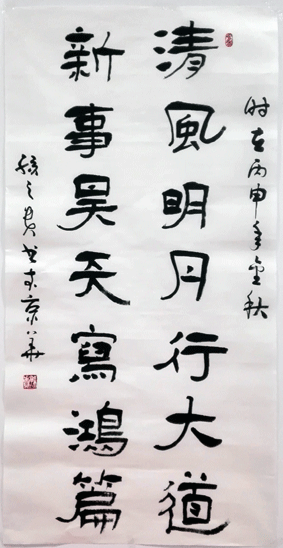 清風明月行大道
新事昊天寫鴻篇
时在丙申年金秋
书于京华